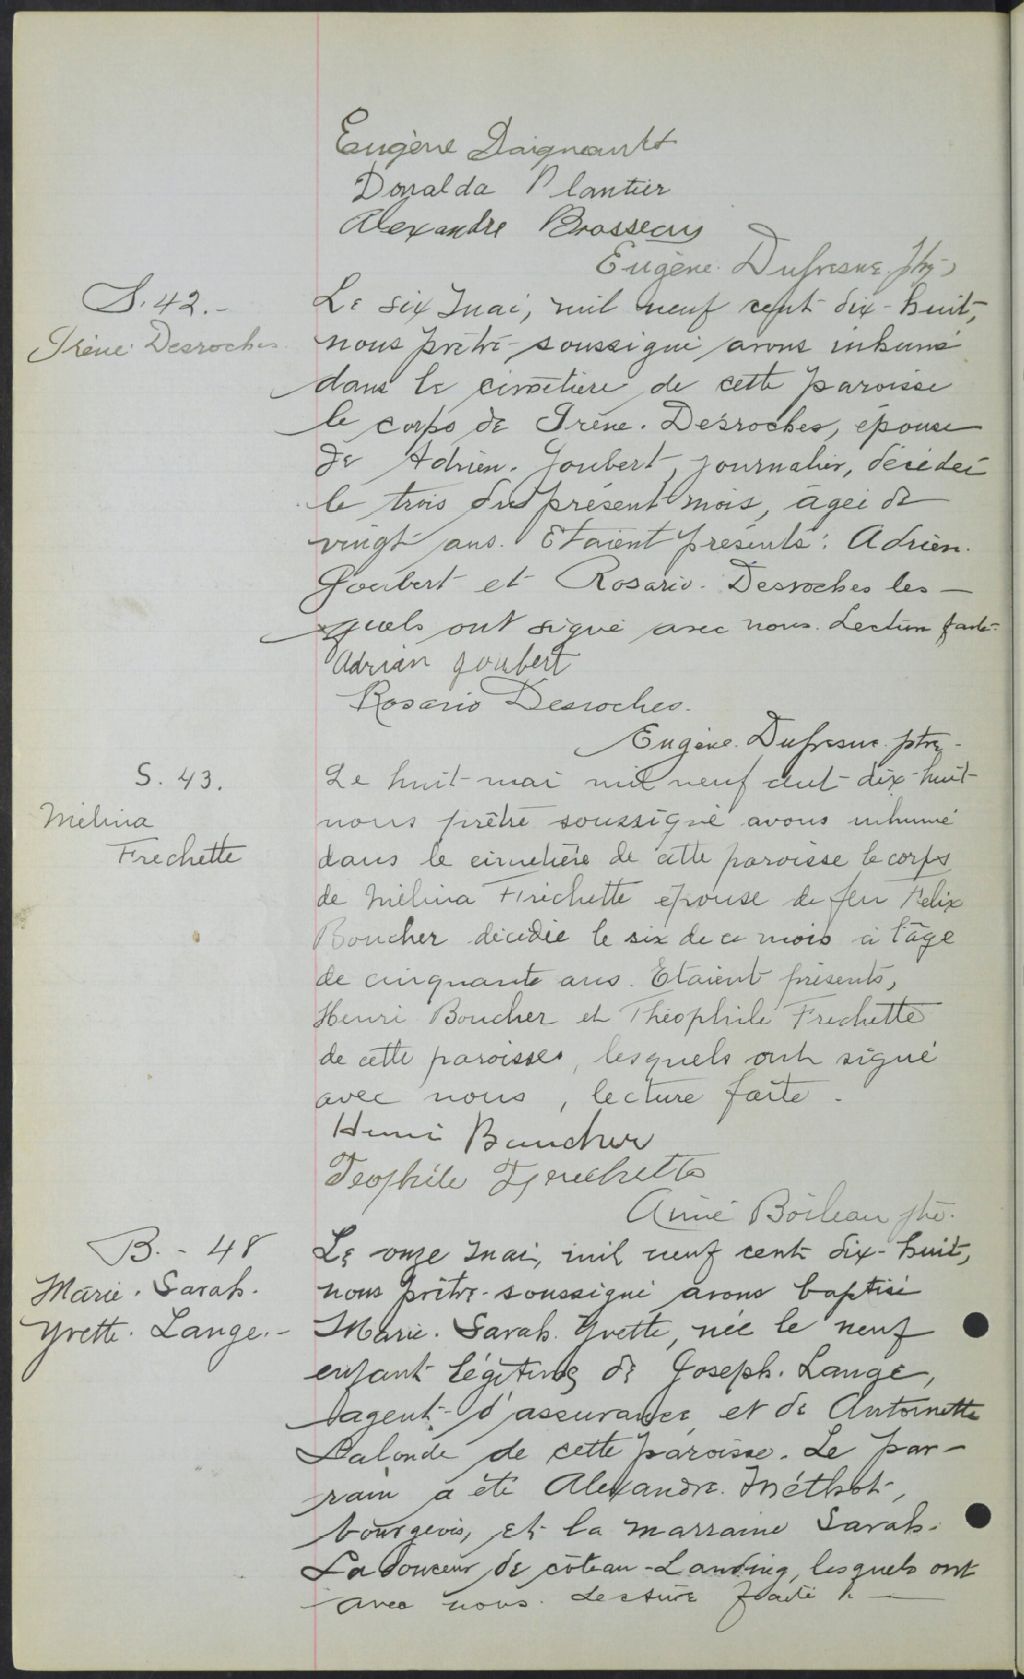 Eugène Daigneault
Donalda Plantier
Alexandre Brosseau
Eugène Dufresne, ptre
S. 42.-
Irène Desroches
Le six mai, mil neuf cent dix-huit,
nous prêtre soussigné avons inhumé
dans le cimetière de cette paroisse
le corps de Irène Desroches, épouse
de Adrien Joubert, journalier, décédée
le trois du présent mois, âgée de
vingt ans. Etaient présents: Adrien
Joubert et Rosario Desroches les-
quels ont signé avec nous. Lecture faite.
Adrian Joubert
Rosario Desroches.
Eugène Dufresne ptre.
S. 43.
Mélina
Frechette
Le huit mai mil neuf cent dix-huit
nous prêtre soussigné avons inhumé
dans le cimetière de cette paroisse le corps
de Mélina Fréchette épouse de feu Felix
Boucher décédée le six de ce mois à l'âge
de cinquante ans. Etaient présents,
Henri Boucher et Théophile Frechette
de cette paroisse, lesquels ont signé
avec nous, lecture faite.
Henri Boucher
Teophile Frechette
Aimé Boileau ptre.
B. - 48
Marie. Sarah.
Yvette. Lange.-
Le onze mai, mil neuf cent dix-huit,
nous prêtre soussigné avons baptisé
Marie. Sarah. Yvette, née le neuf
enfant légitime de Joseph. Lange,
agent d'assurance et de Antoinette
Lalonde de cette paroisse. Le par-
rain a été Alexandre. Méthot,
bourgeois, et la marraine Sarah.
Ladouceur de côteau-Landing, lesquels ont
avec nous. Lecture faite.